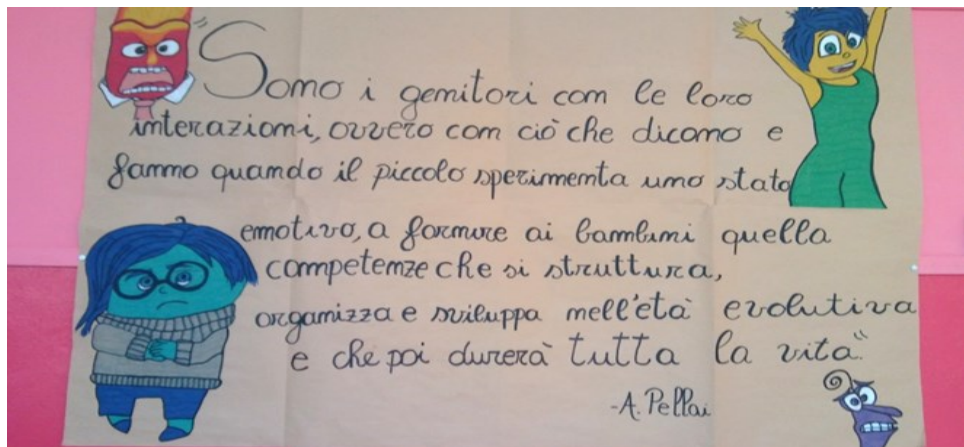 "Sono i genitori con le loro
interazioni, ovvero con ciò che dicono e
fanno quando il piccolo sperimenta uno stato
emotivo, a fornire ai bambini quella
competenze che si struttura,
organizza e sviluppa nell'età evolutiva
e che poi durerà tutta la vita"
-A. Pellai